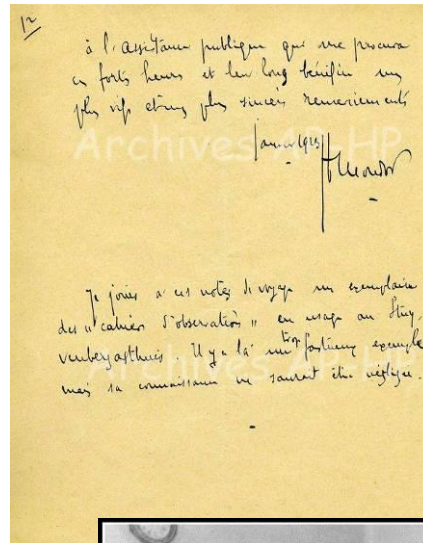 12
à l'assistance publique qui me procura
ces fortes heures et leur long bénéfice mes
plus vifs et mes plus sincères remerciements
janvier 1925
HMondor
Archives AP-HP
Je joins à ces notes de voyage un exemplaire
des "cahiers d'observations" en usage au Stuy-
venbergasthuis. Il y a là un trop fastueux exemple
mais sa connaissance ne saurait être négligée.
Archives AP-HP